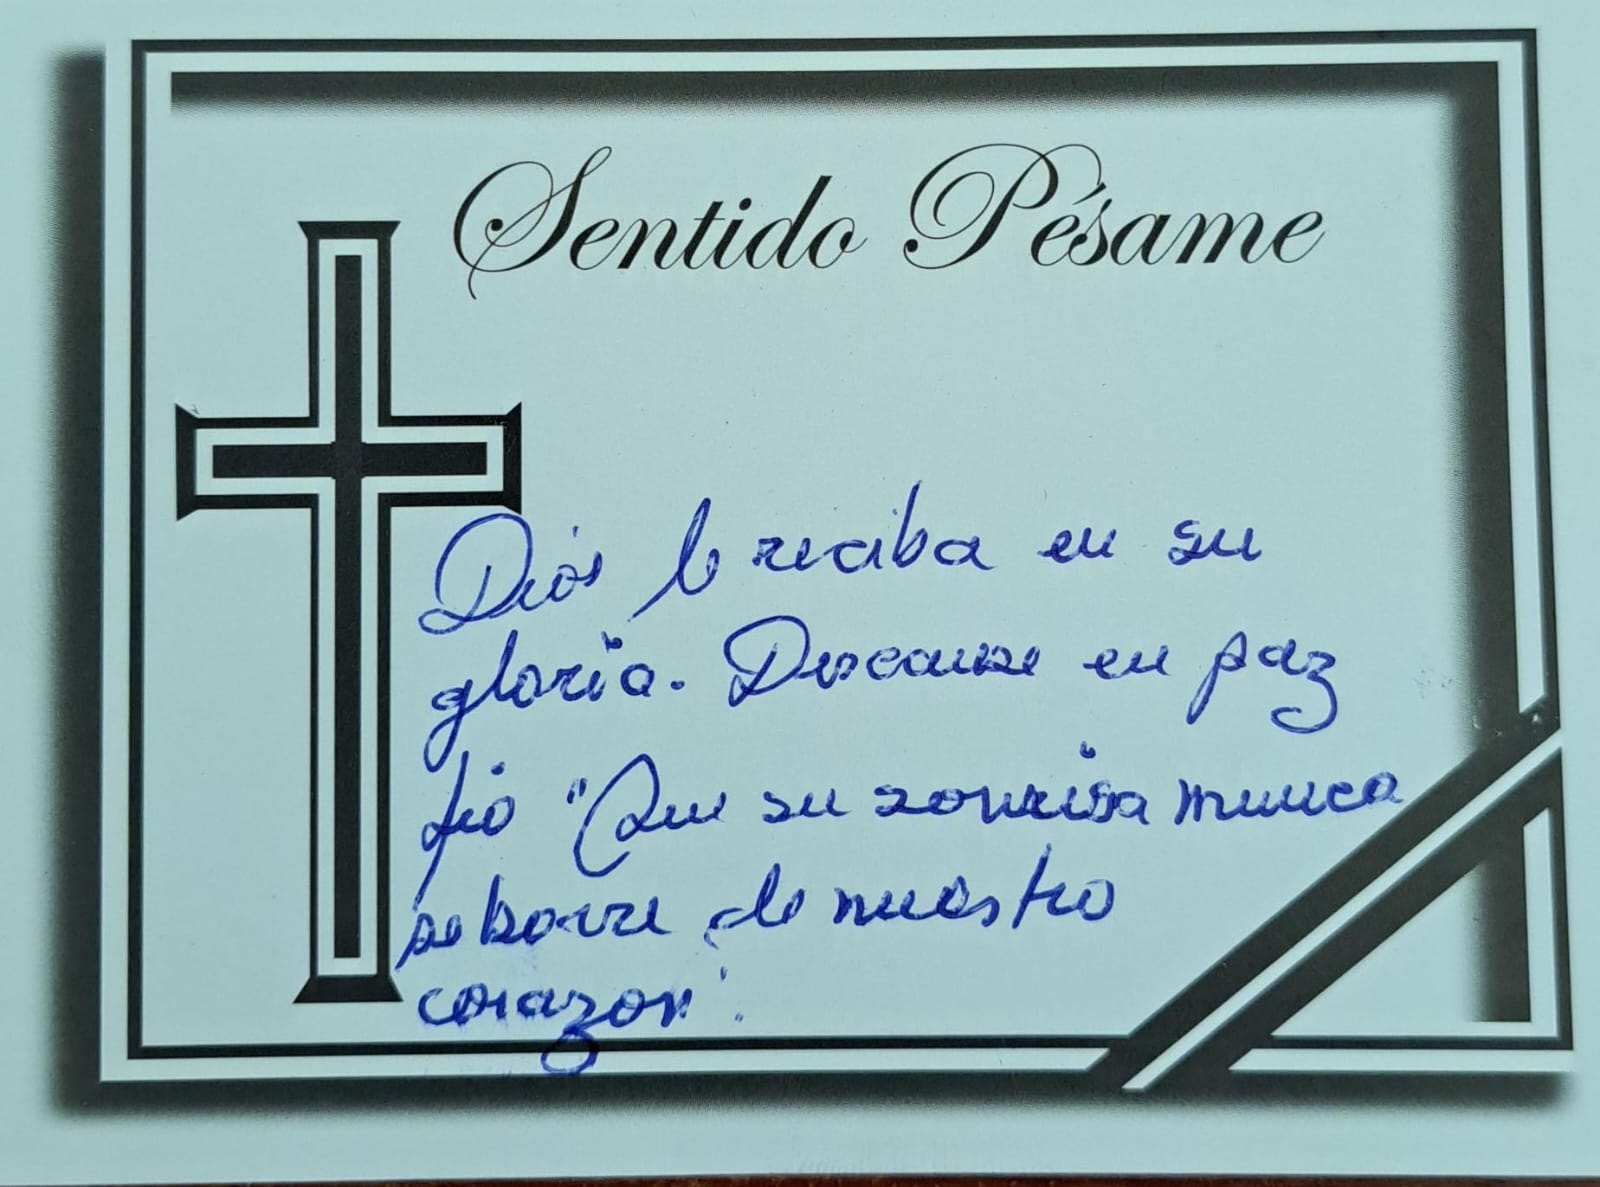 Sentido Pésame
Dios lo reciba en su
gloria. Descanse en paz
tio "Que su sonrisa nunca
se borre de nuestro
corazon".